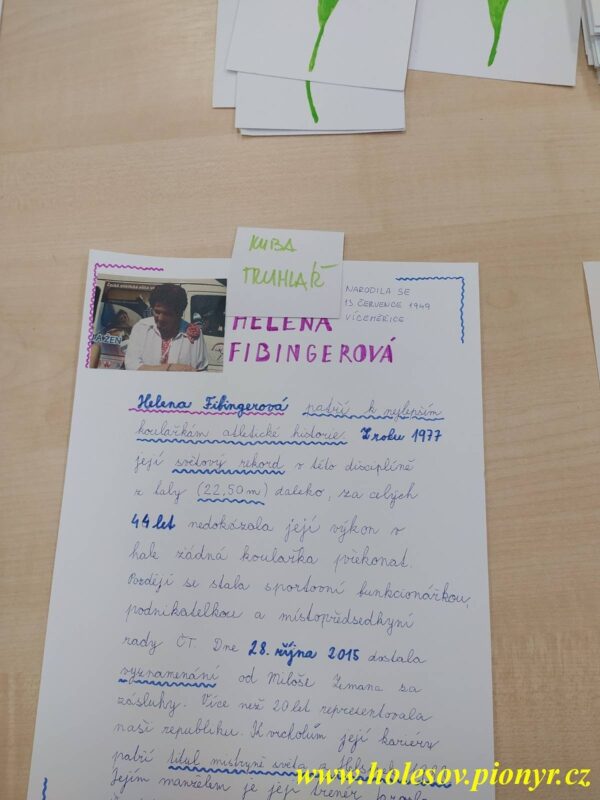 KUBA
TRUHLÁŘ
NARODILA SE
13 ČERVENCE 1949
VÍCEMĚŘICE
HELENA
FIBINGEROVÁ
Helena Fibingerová patří k nejlepším
koulařkám atletické historie. Z roku 1977
její světový rekord v této disciplíně
z haly (22,50m) daleko, za celých
44 let nedokázala její výkon v
hale žádná koulařka překonat.
Později se stala sportovní funkcionářkou,
podnikatelkou a místopředsedkyní
rady ČT. Dne 28. října 2015 dostala
vyznamenání od Miloše Zemana za
zásluhy. Více než 20 let reprezentovala
naši republiku. K vrcholům její kariéry
patří titul mistryně světa
Jejím manželem je její trenér
www.holesov.pionyr.cz